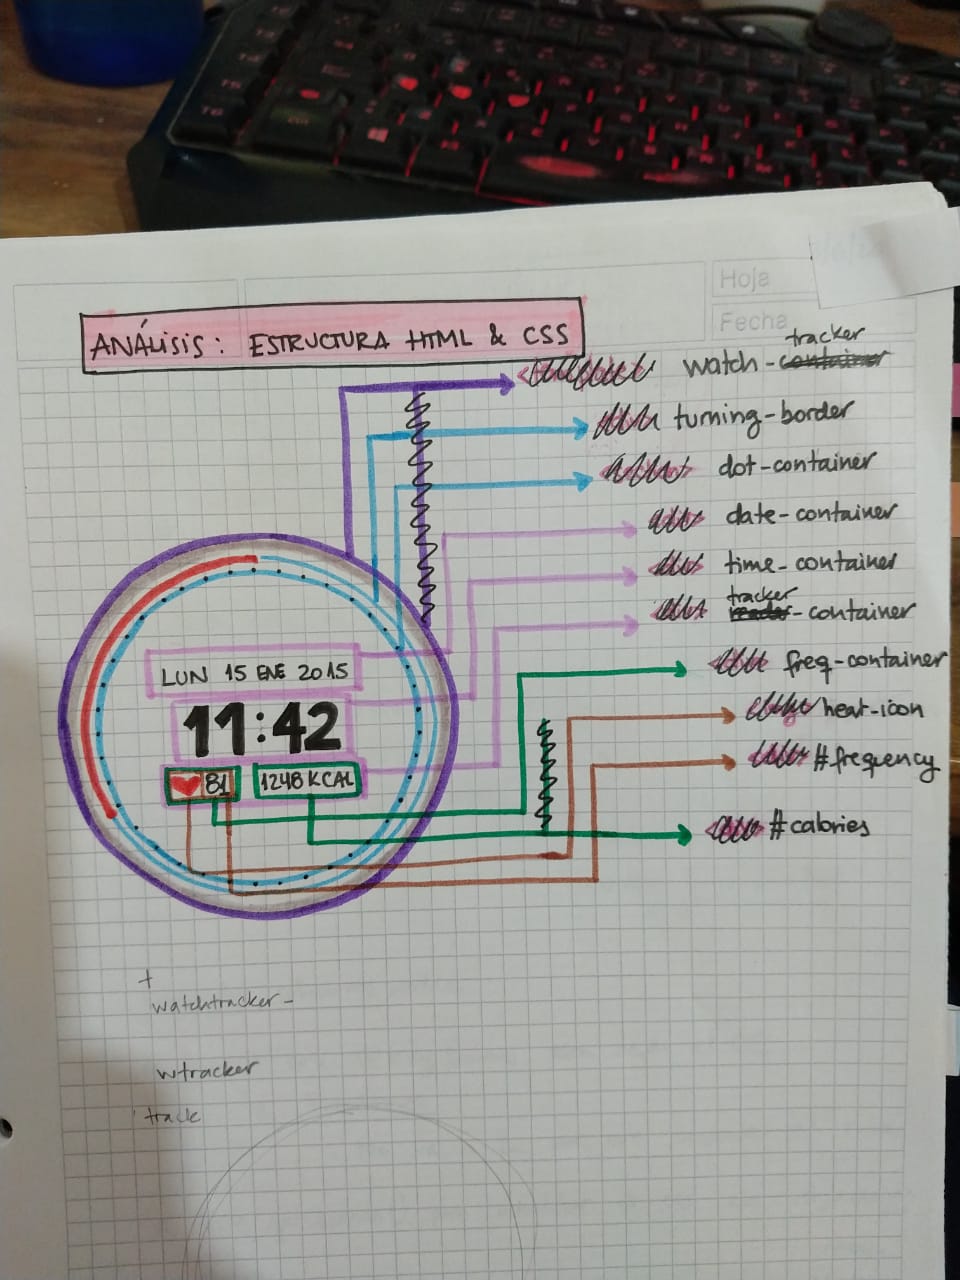 Hoja
Fecha
ANÁLISIS: ESTRUCTURA HTML & CSS
tracker
watch-container
turning-border
dot-container
date-container
time-container
tracker
reader-container
freq-container
heat-icon
#frequency
#calories
LUN 15 ENE 2015
11:42
81
1248 KCAL
+
watchtracker-
wtracker
track